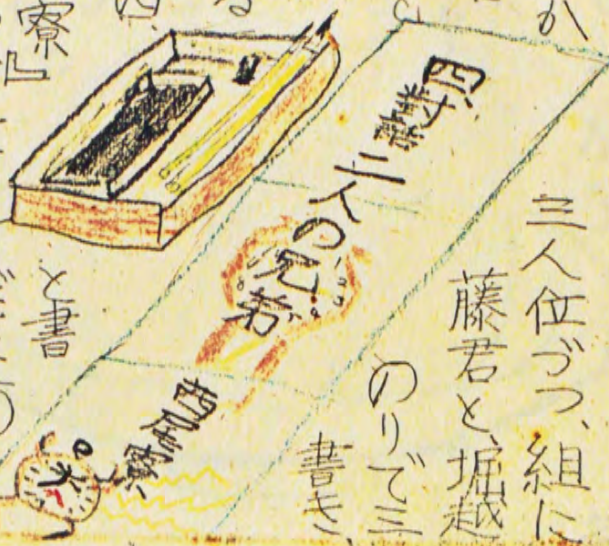 か
三人位づつ、組に
藤君と、堀越
のりで三
書き、
四、對話 二人の兄弟
る
四、
と書
寮』